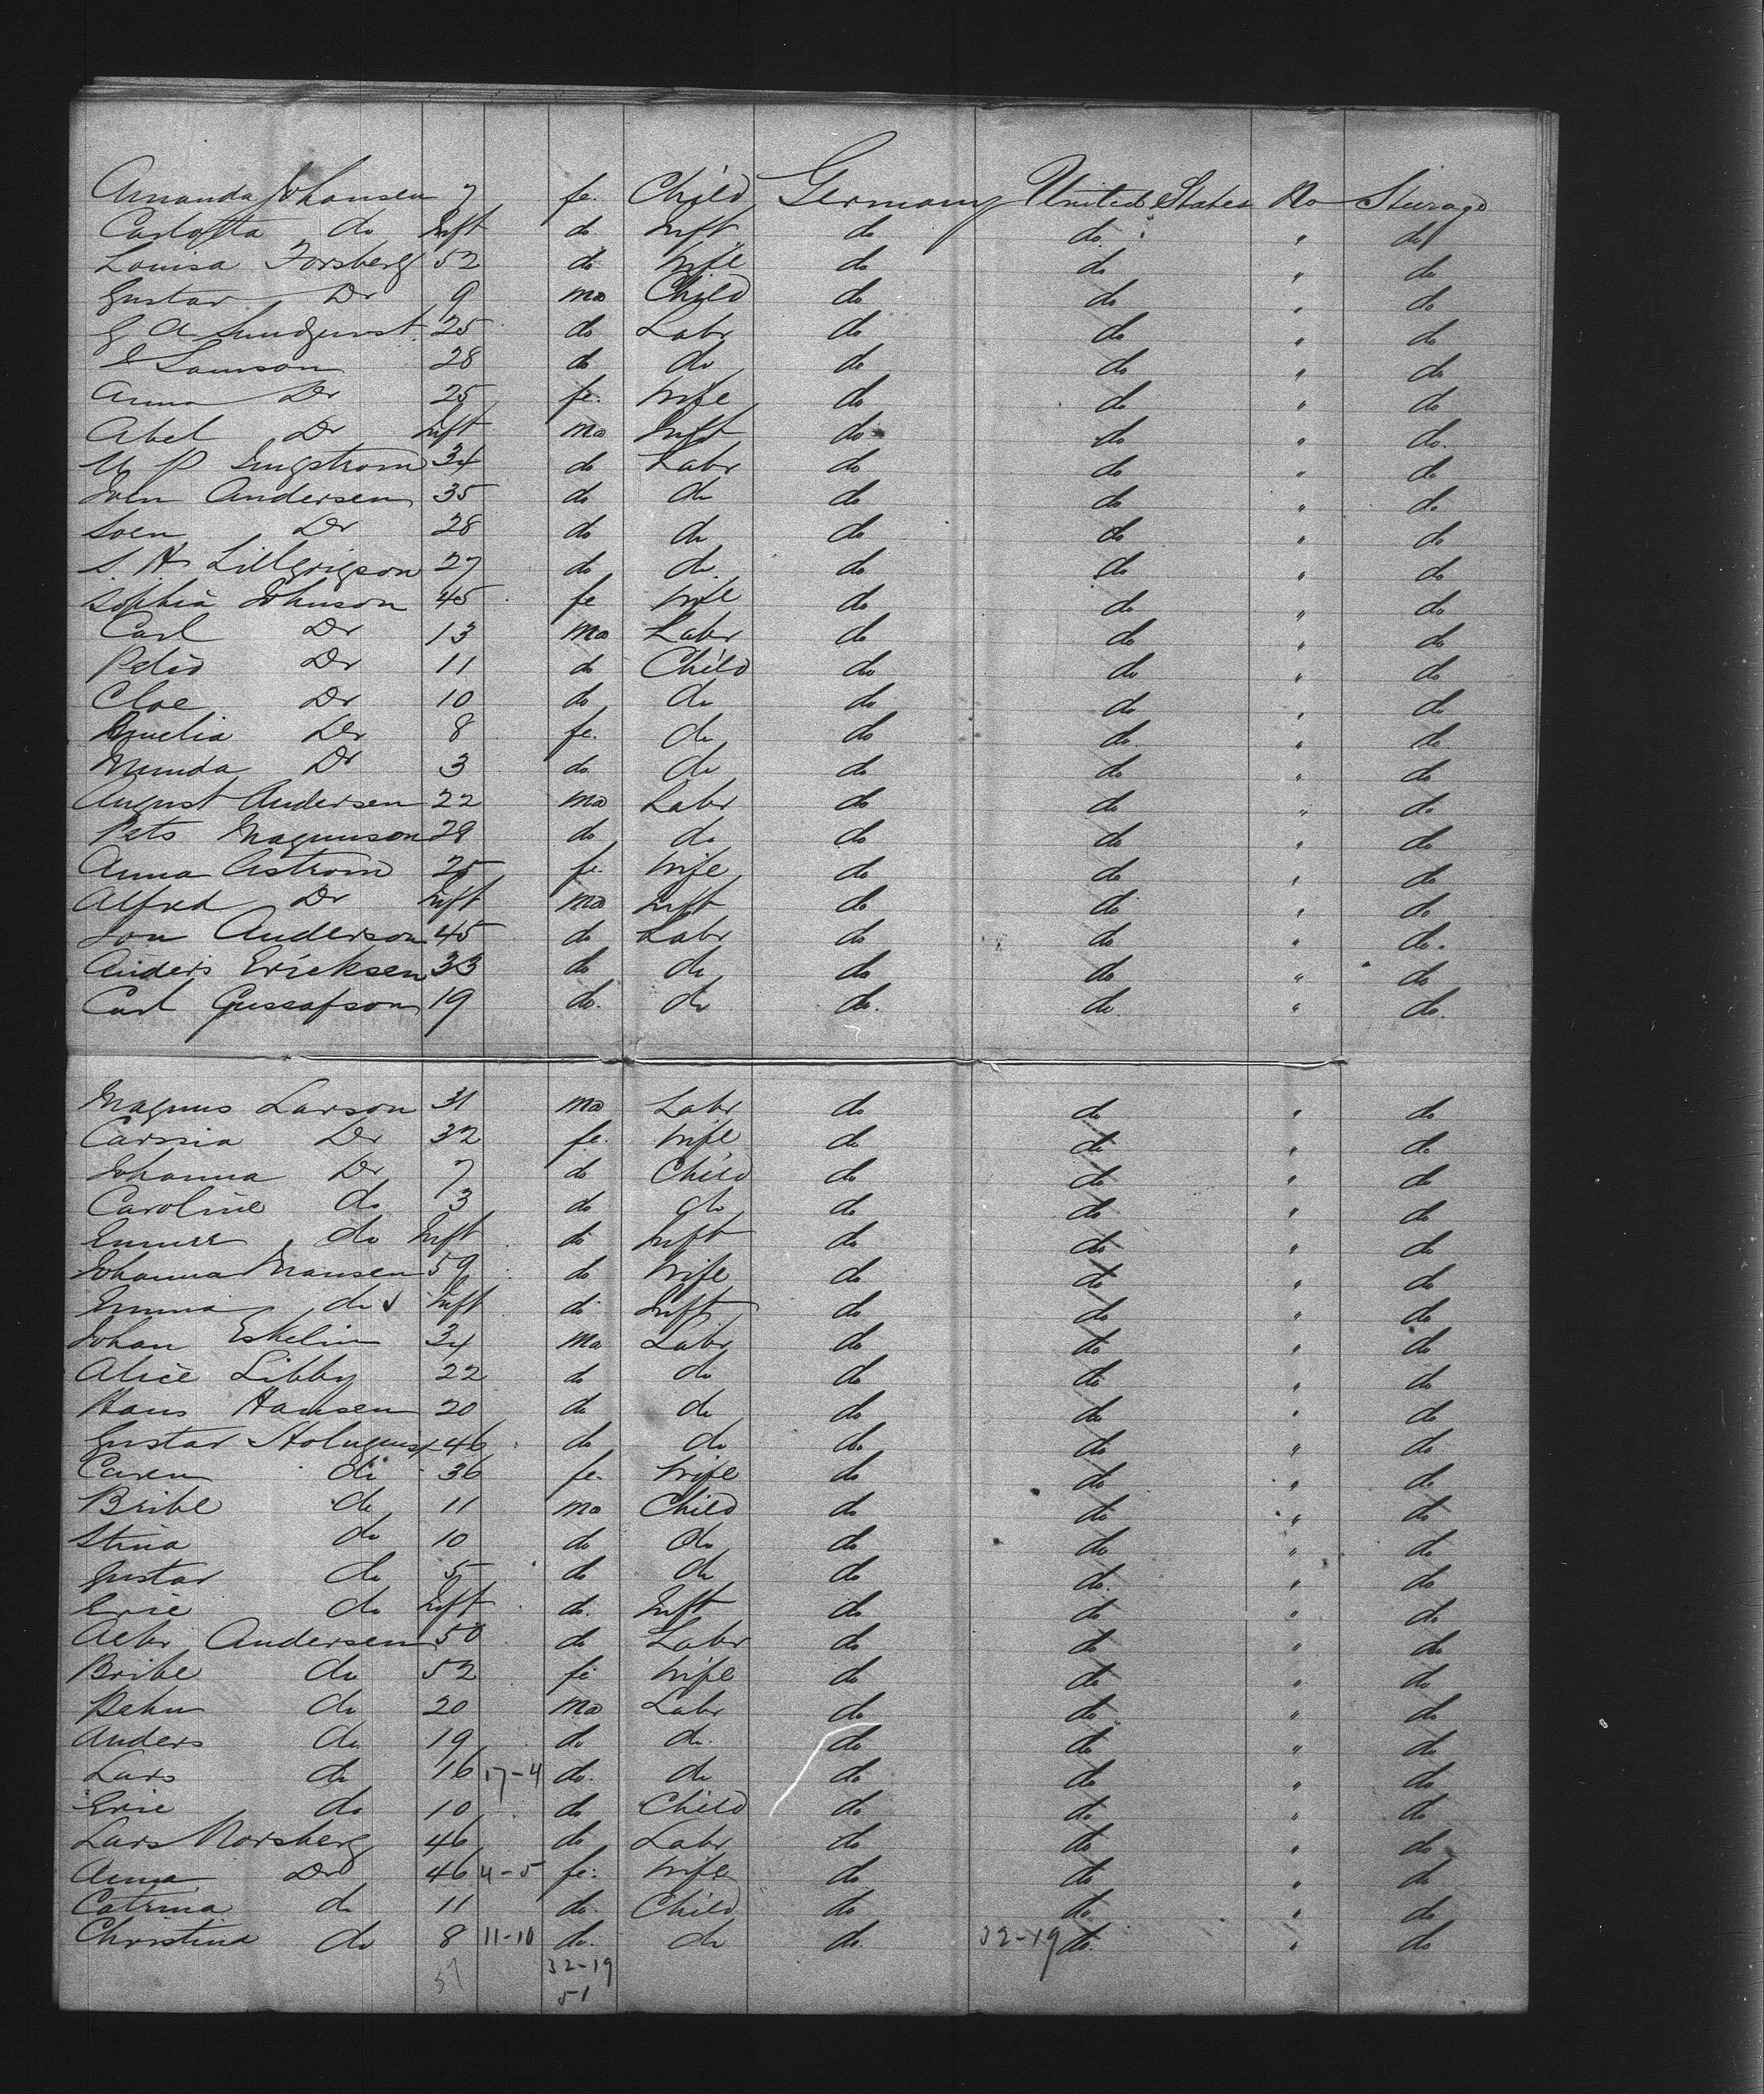 Amanda Johansen 7 fe. Child Germany United States No Steerage
Carlotta do Inft do Inft do do " do
Louisa Forsberg 52 do wife do do " do
Gustav Do 9 ma Child do do " do
G A 25 do Labr do do " do
Samson 28 do do do do " do
Anna Do 25 fe. wife do do " do
Abel Do Inft ma Inft do do " do.
P Engstrom 34 do Labr do do " do
Sven Andersen 35 do do do do " do
Soen Do 28 do do do do " do
S. H. 27 do do do do " do
Sophia Johnson 45 fe wife do do " do
Carl Do 13 ma Labr do do " do
Do 11 do Child do do " do
Cloe Do 10 do do do do " do
Do 8 fe. do do do. " do.
Do 3 do do do do " do
August Andersen 22 ma Labr do do " do
Magnuson do do do do " do
Anna Astrom 25 fe. wife do do " do
Alfred Do Inft ma Inft do do " do
Jon Anderson 45 do Labr do do " do.
Anders Ericksen 33 do do do do " do
Carl Gussafson 19 do. do do. do. " do.
Magnus Larson 31 ma Labr do do " do
Do 32 fe. wife do do " do
Johanna Do 7 do Child do do " do
Caroline do 3 do do do do " do
do Inft do Inft do do " do
Johanna Mansen 59 do wife do do " do
Emma do Inft do Inft do do " do
Johan Eskelin 34 ma Labr do do " do
Alice Libby 22 do do do do " do
Hans Hansen 20 do do do do " do
Gustav 46 do do do do " do
Caren do 36 fe. wife do do " do
Bribe do 11 ma Child do do " do
Stina do 10 do do do do " do
Gustav do 5 do do do do. " do
Eric do Inft do. Inft do do " do
Andersen 50 do Labr do do " do
Bribe do 52 fe wife do do " do
do 20 ma Labr do do " do
Anders do 19 do do. do do " do
Lars do 16 17-4 do. do do do " do
Eric do 10 do Child do do " do
Lars Norsberg 46 do Labr do do " do
Anna Do 46 4-5 fe. wife do do " do
Catrina do 11 do. Child do do " do
Christina do 8 11-10 do. do do. 32-19 do. " do
51 32-19
51